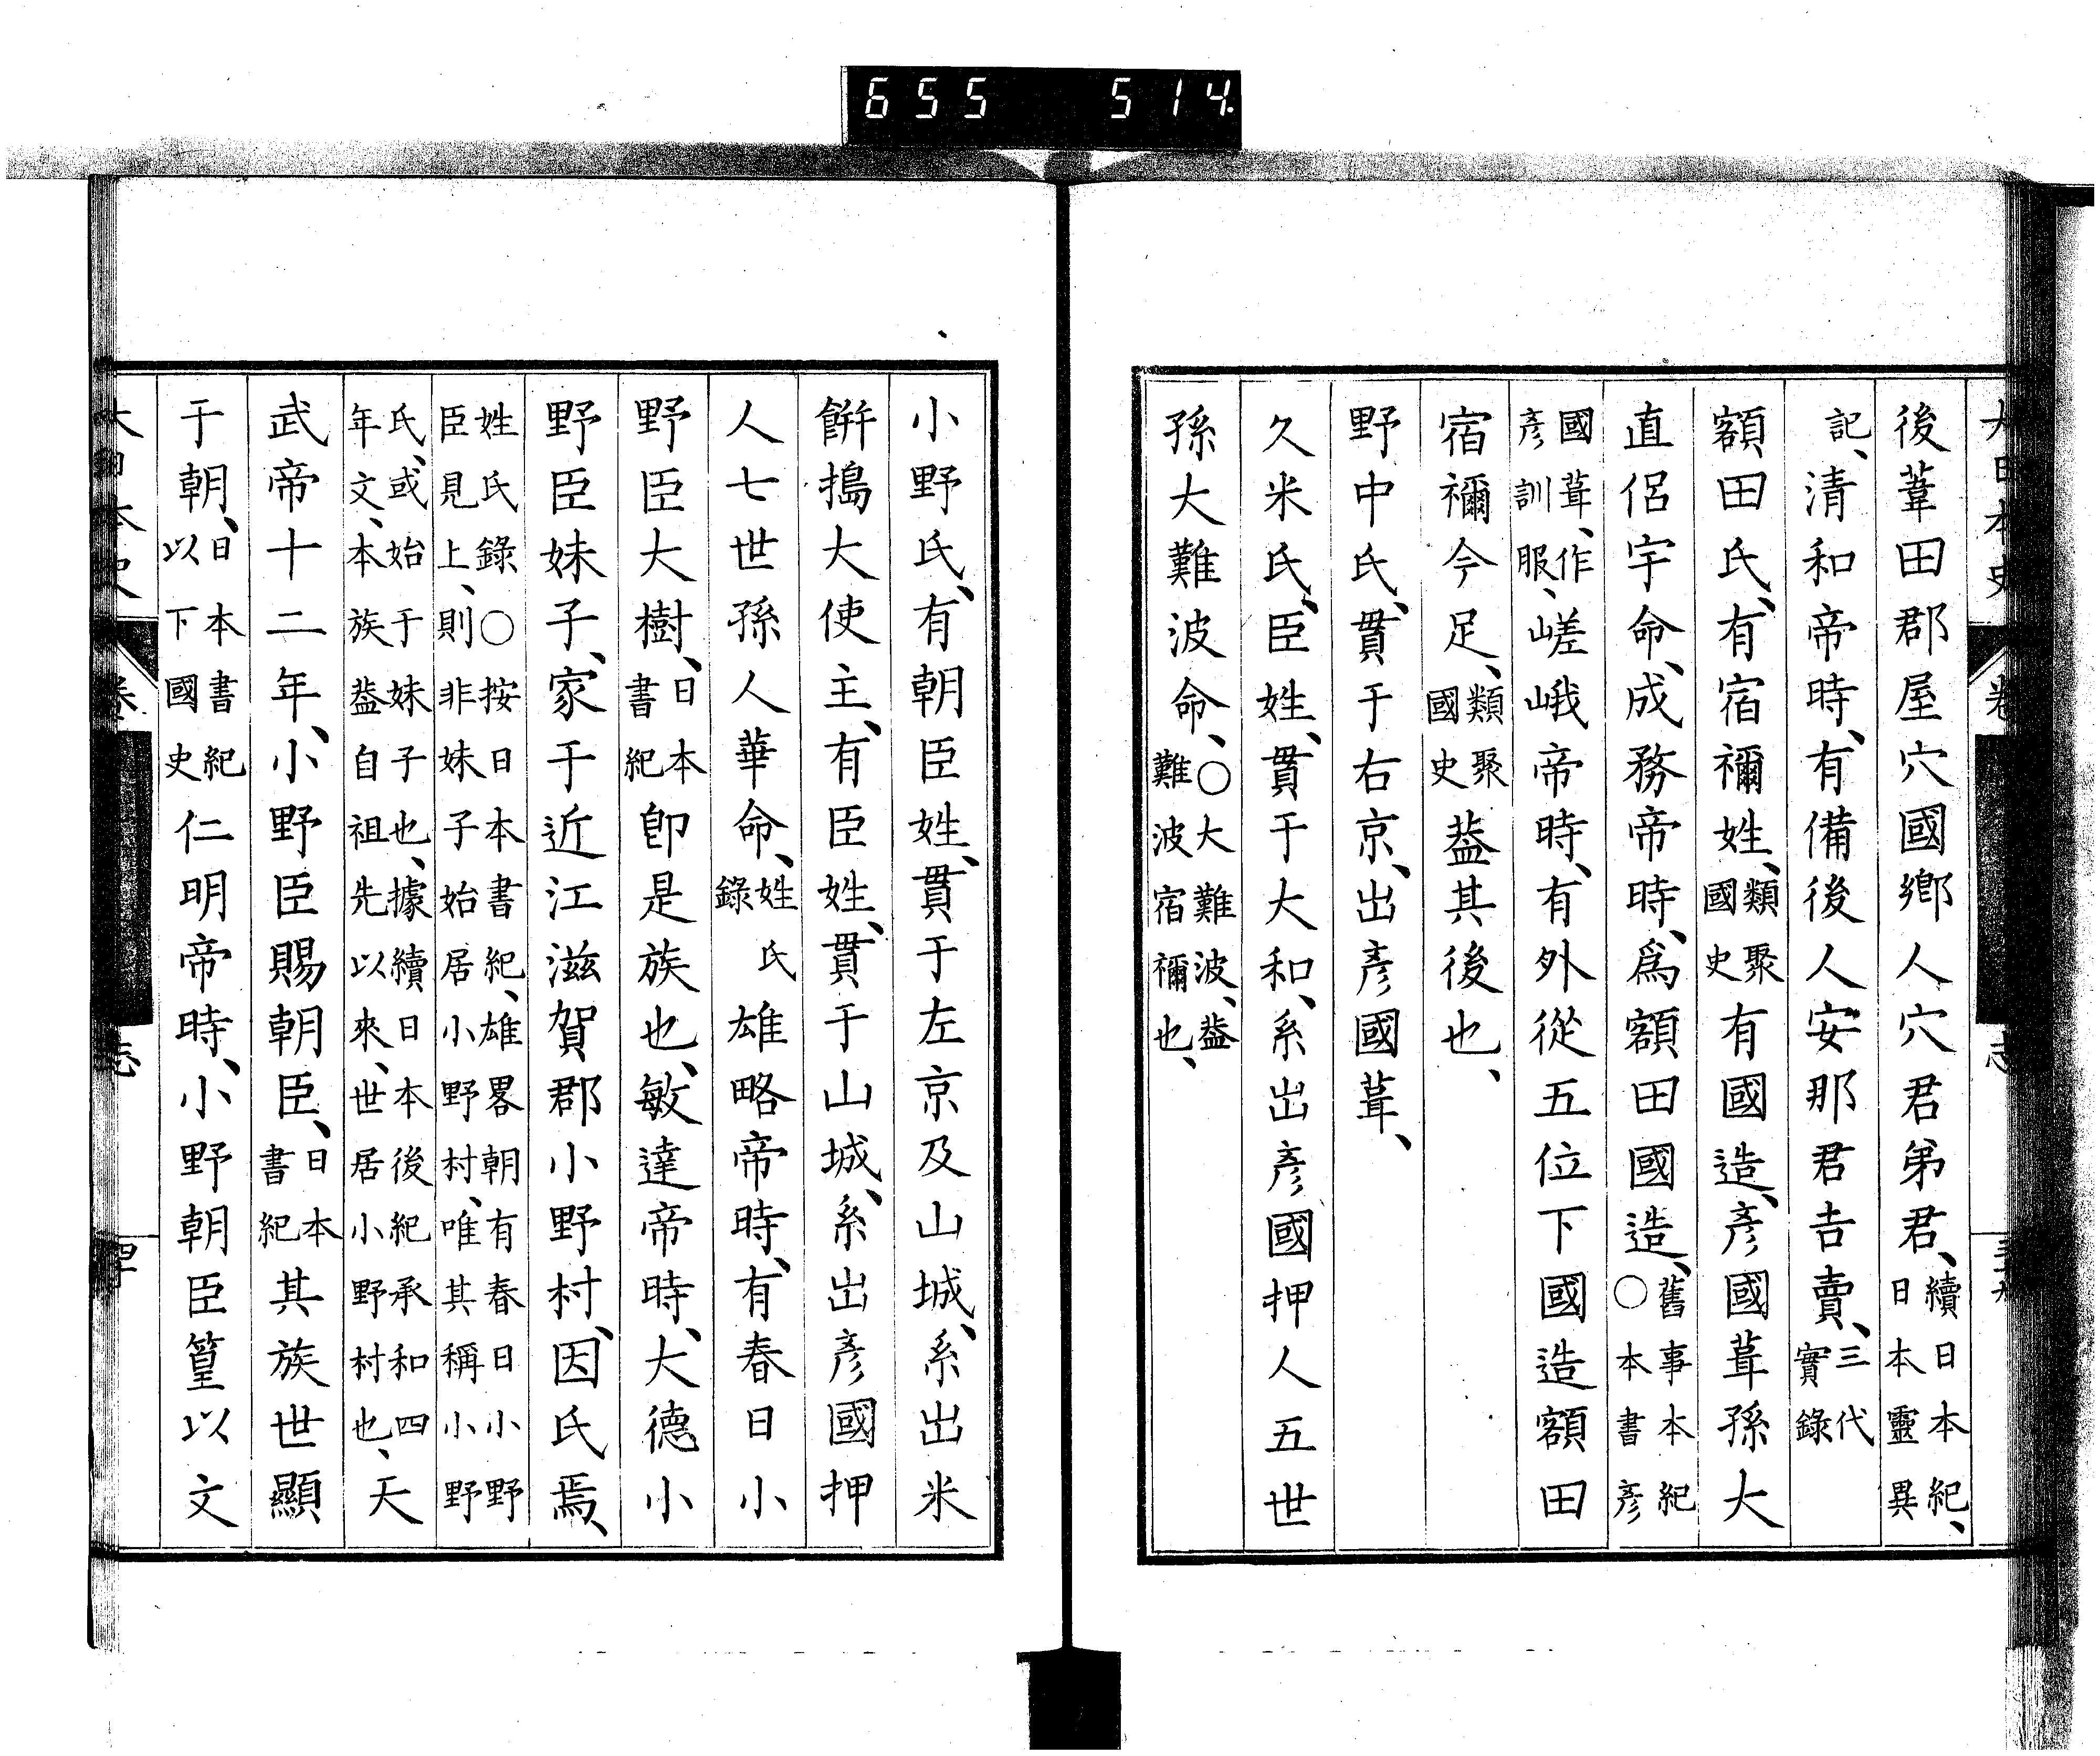 655 514
大日本史 卷 志
後葦田郡屋穴國鄉人穴君弟君、續日本紀、日本靈異
記、清和帝時、有備後人安那君吉賣、三代實錄
額田氏、有宿禰姓、類聚國史有國造、彥國葺孫大
直侶宇命、成務帝時、爲額田國造、舊事本紀○本書彥
國葺、作彥訓服、嵯峨帝時、有外從五位下國造額田
宿禰今足、類聚國史葢其後也、
野中氏、貫于右京、出彥國葺、
久米氏、臣姓、貫于大和、系出彥國押人五世
孫大難波命、○大難波、葢難波宿禰也、
小野氏、有朝臣姓、貫于左京及山城、系出米
餠搗大使主、有臣姓、貫于山城、系出彥國押
人七世孫人華命、姓氏錄雄略帝時、有春日小
野臣大樹、日本書紀卽是族也、敏達帝時、大德小
野臣妹子、家于近江滋賀郡小野村、因氏焉、
姓氏錄○按日本書紀、雄畧朝有春日小野臣見上、則非妹子始居小野村、唯其稱小野
氏、或始于妹子也、據續日本後紀承和四年文、本族葢自祖先以來、世居小野村也、天
武帝十二年、小野臣賜朝臣、日本書紀其族世顯
于朝、日本書紀以下國史仁明帝時、小野朝臣篁以文
大日本史 卷 志